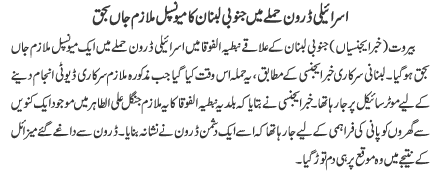 اسرائیلی ڈرون حملے میں جنوبی لبنان کا میونسپل ملازم جاں بحق
بیروت (خبر ایجنسیاں) جنوبی لبنان کے علاقے نبطیہ الفوقا میں اسرائیلی ڈرون حملے میں ایک میونسپل ملازم جاں
بحق ہو گیا۔ لبنانی سرکاری خبر ایجنسی کے مطابق، یہ حملہ اس وقت کیا گیا جب مذکورہ ملازم سرکاری ڈیوٹی انجام دینے
کے لیے موٹر سائیکل پر جا رہا تھا۔ خبر ایجنسی نے بتایا کہ بلدیہ نبطیہ الفوقا کا یہ ملازم جنگل علی الطاہر میں موجود ایک کنویں
سے گھروں کو پانی کی فراہمی کے لیے جا رہا تھا کہ اسے ایک دشمن ڈرون نے نشانہ بنایا۔ ڈرون سے داغے گئے میزائل
کے نتیجے میں وہ موقع پر ہی دم توڑ گیا۔